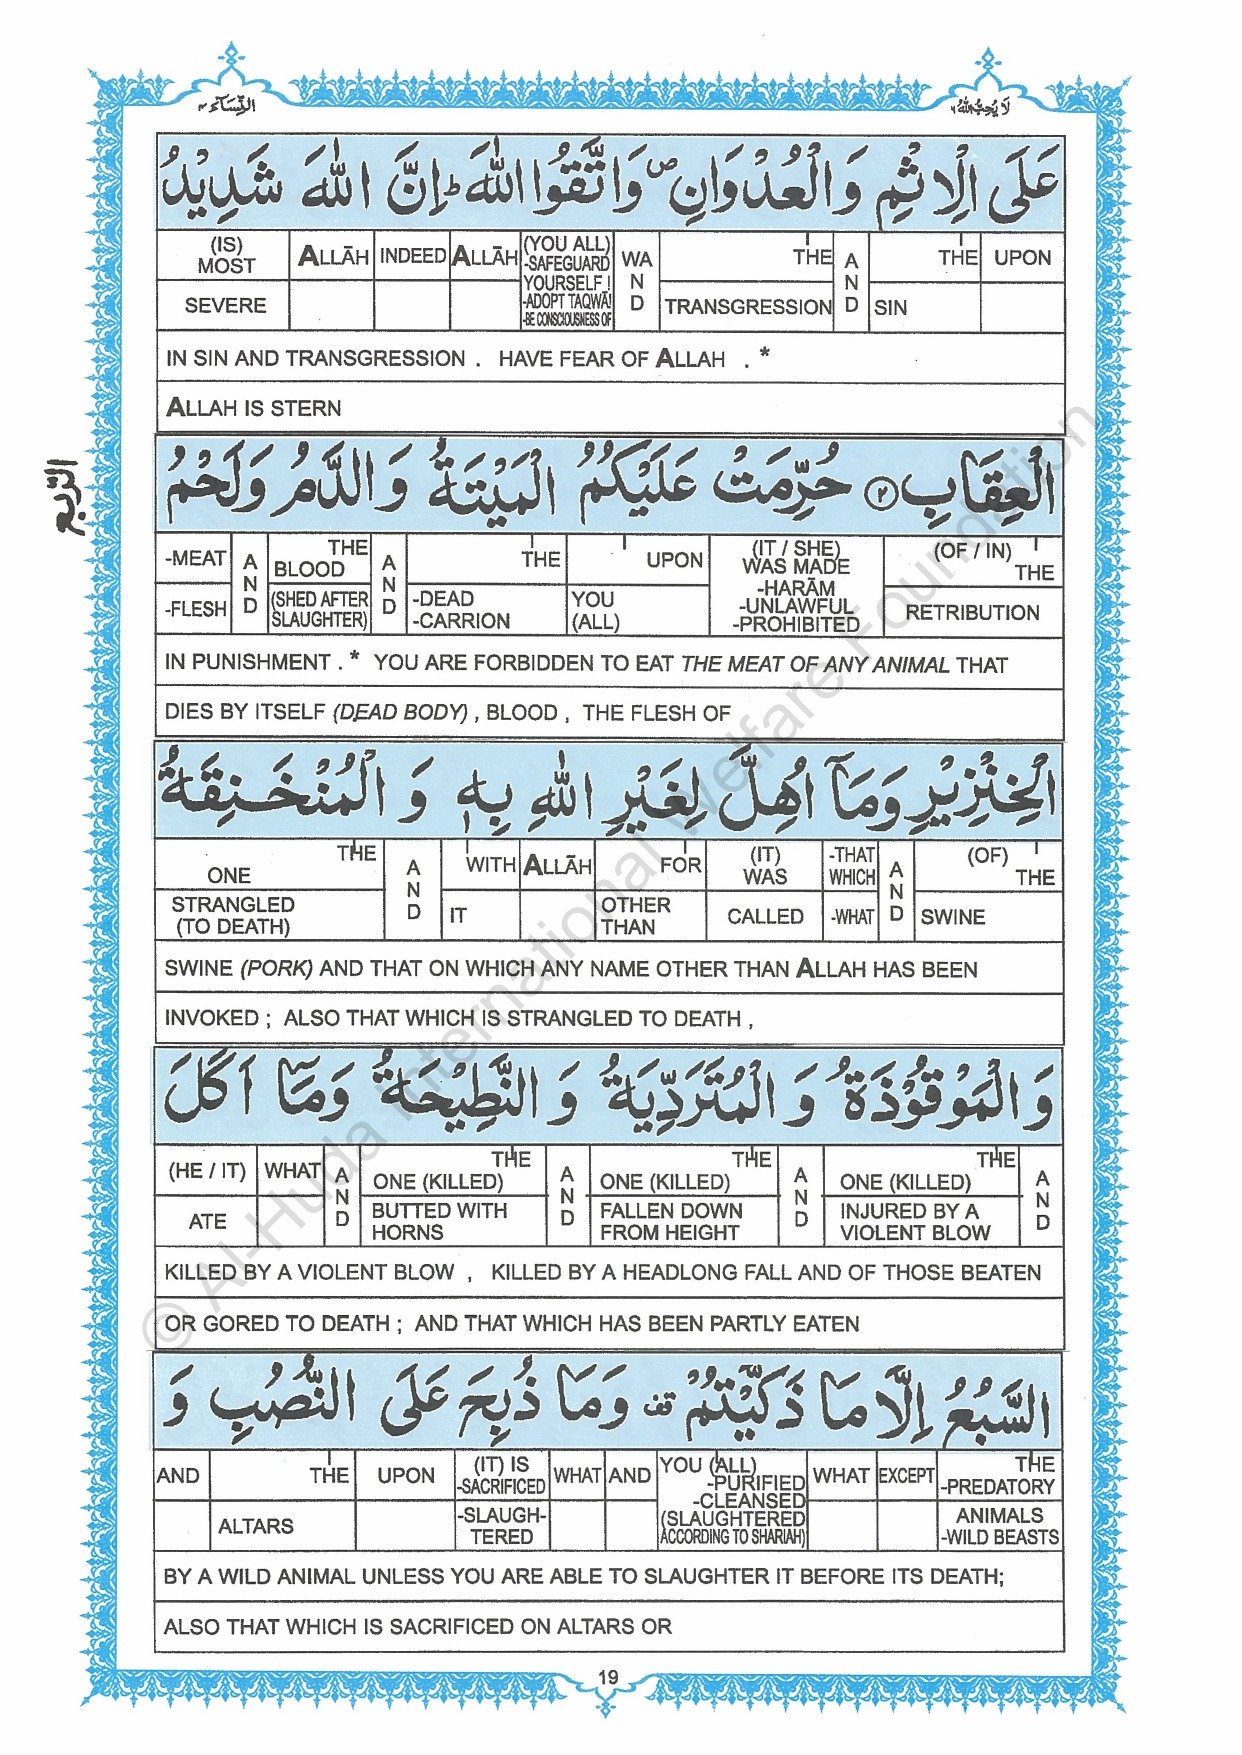 النِّسَآء ٤
لَا يُحِبُّ اللّٰهُ ٦
عَلَى الْاِثْمِ وَالْعُدْوَانِ ۪ وَاتَّقُوا اللّٰهَ ؕ اِنَّ اللّٰهَ شَدِيْدُ
(IS) MOST ALLĀH INDEED ALLĀH (YOU ALL) -SAFEGUARD YOURSELF! -ADOPT TAQWĀ! -BE CONSCIOUSNESS OF WA N D THE A N D THE UPON
SEVERE TRANSGRESSION SIN
IN SIN AND TRANSGRESSION . HAVE FEAR OF ALLAH . *
ALLAH IS STERN
الرّبع
الْعِقَابِ ۝٢ حُرِّمَتْ عَلَيْكُمُ الْمَيْتَةُ وَالدَّمُ وَلَحْمُ
-MEAT AND THE BLOOD AND THE UPON (IT / SHE) WAS MADE -HARĀM -UNLAWFUL -PROHIBITED (OF / IN) THE
-FLESH (SHED AFTER SLAUGHTER) -DEAD -CARRION YOU (ALL) RETRIBUTION
IN PUNISHMENT . * YOU ARE FORBIDDEN TO EAT THE MEAT OF ANY ANIMAL THAT
DIES BY ITSELF (DEAD BODY) , BLOOD , THE FLESH OF
الْخِنْزِيْرِ وَمَآ اُهِلَّ لِغَيْرِ اللّٰهِ بِهٖ وَ الْمُنْخَنِقَةُ
THE ONE AND WITH ALLĀH FOR (IT) WAS -THAT WHICH AND (OF) THE
STRANGLED (TO DEATH) IT OTHER THAN CALLED -WHAT SWINE
SWINE (PORK) AND THAT ON WHICH ANY NAME OTHER THAN ALLAH HAS BEEN
INVOKED ; ALSO THAT WHICH IS STRANGLED TO DEATH ,
وَ الْمَوْقُوْذَةُ وَ الْمُتَرَدِّيَةُ وَ النَّطِيْحَةُ وَمَآ اَكَلَ
(HE / IT) WHAT AND THE ONE (KILLED) AND THE ONE (KILLED) AND THE ONE (KILLED) AND
ATE BUTTED WITH HORNS FALLEN DOWN FROM HEIGHT INJURED BY A VIOLENT BLOW
KILLED BY A VIOLENT BLOW , KILLED BY A HEADLONG FALL AND OF THOSE BEATEN
OR GORED TO DEATH ; AND THAT WHICH HAS BEEN PARTLY EATEN
السَّبُعُ اِلَّا مَا ذَكَّيْتُمْ ۫ وَمَا ذُبِحَ عَلَى النُّصُبِ وَ
AND THE UPON (IT) IS -SACRIFICED WHAT AND YOU (ALL) -PURIFIED -CLEANSED (SLAUGHTERED ACCORDING TO SHARIAH) WHAT EXCEPT THE -PREDATORY
ALTARS -SLAUGH- TERED ANIMALS -WILD BEASTS
BY A WILD ANIMAL UNLESS YOU ARE ABLE TO SLAUGHTER IT BEFORE ITS DEATH;
ALSO THAT WHICH IS SACRIFICED ON ALTARS OR
19
© Al-Huda International Welfare Foundation